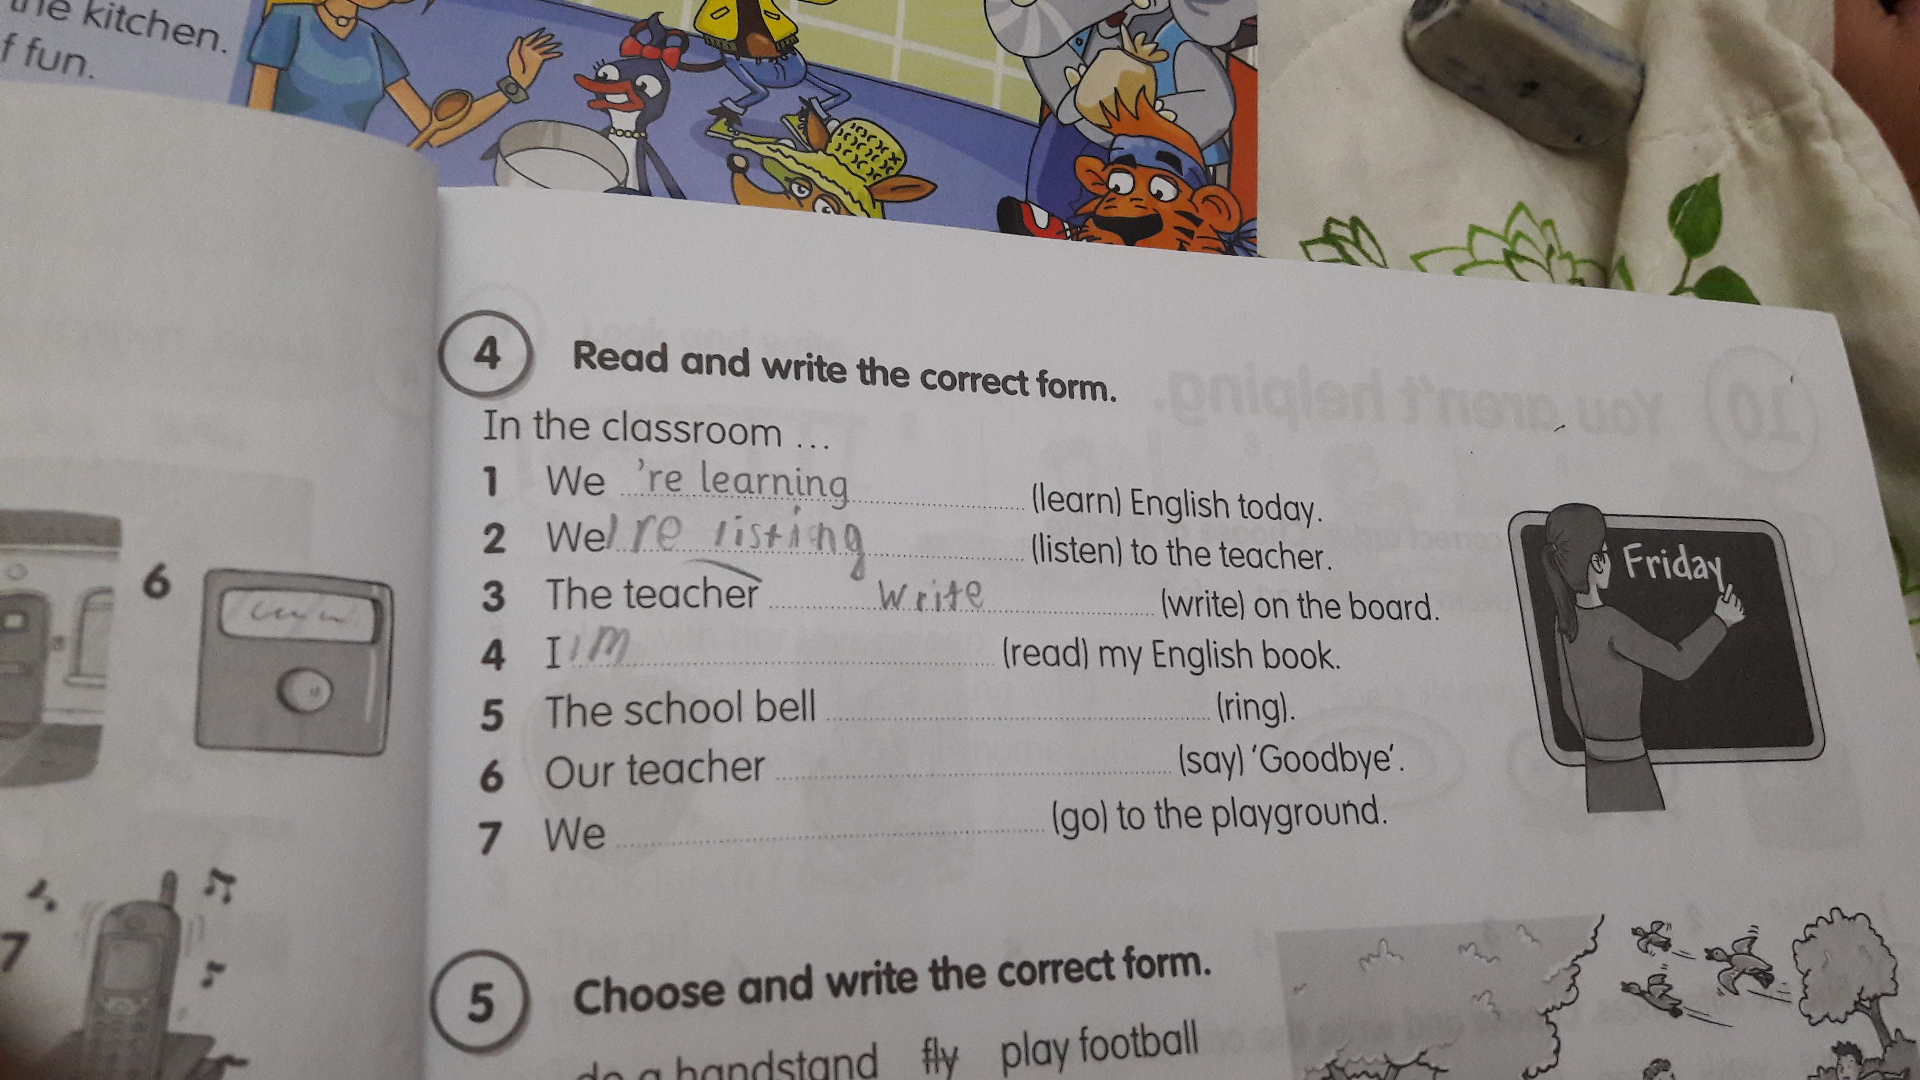 the kitchen.
f fun.
4 Read and write the correct form.
In the classroom ...
1 We 're learning (learn) English today.
2 We're listing (listen) to the teacher.
3 The teacher write (write) on the board.
4 I'm (read) my English book.
5 The school bell (ring).
6 Our teacher (say) 'Goodbye'.
7 We (go) to the playground.
Friday
6
7
5 Choose and write the correct form.
do a handstand fly play football